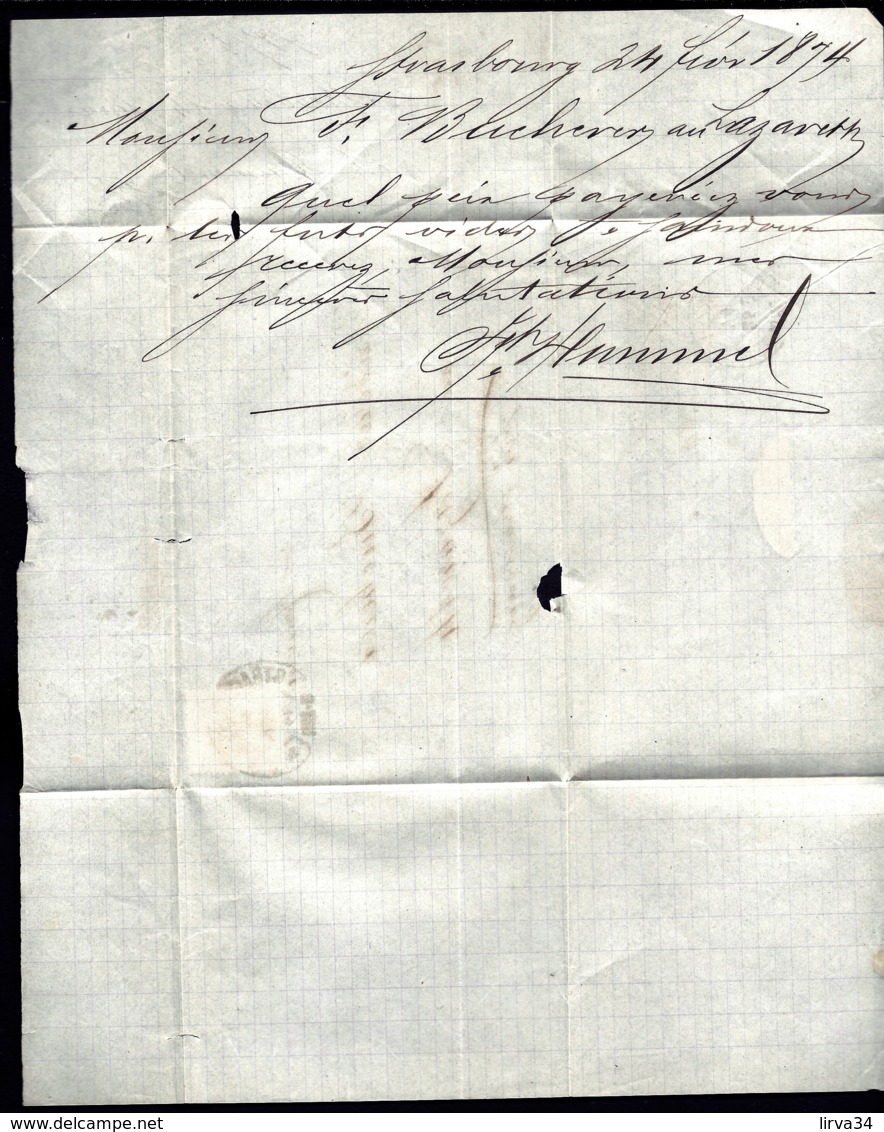 Strasbourg 24 fév 1874
Monsieur F. Bucherer au Lazareth
Quel prix payeriez vous
p. les futs vides
Recevez, Monsieur, mes
sincères salutations
Jph Hummel
delcampe.net
lirva34